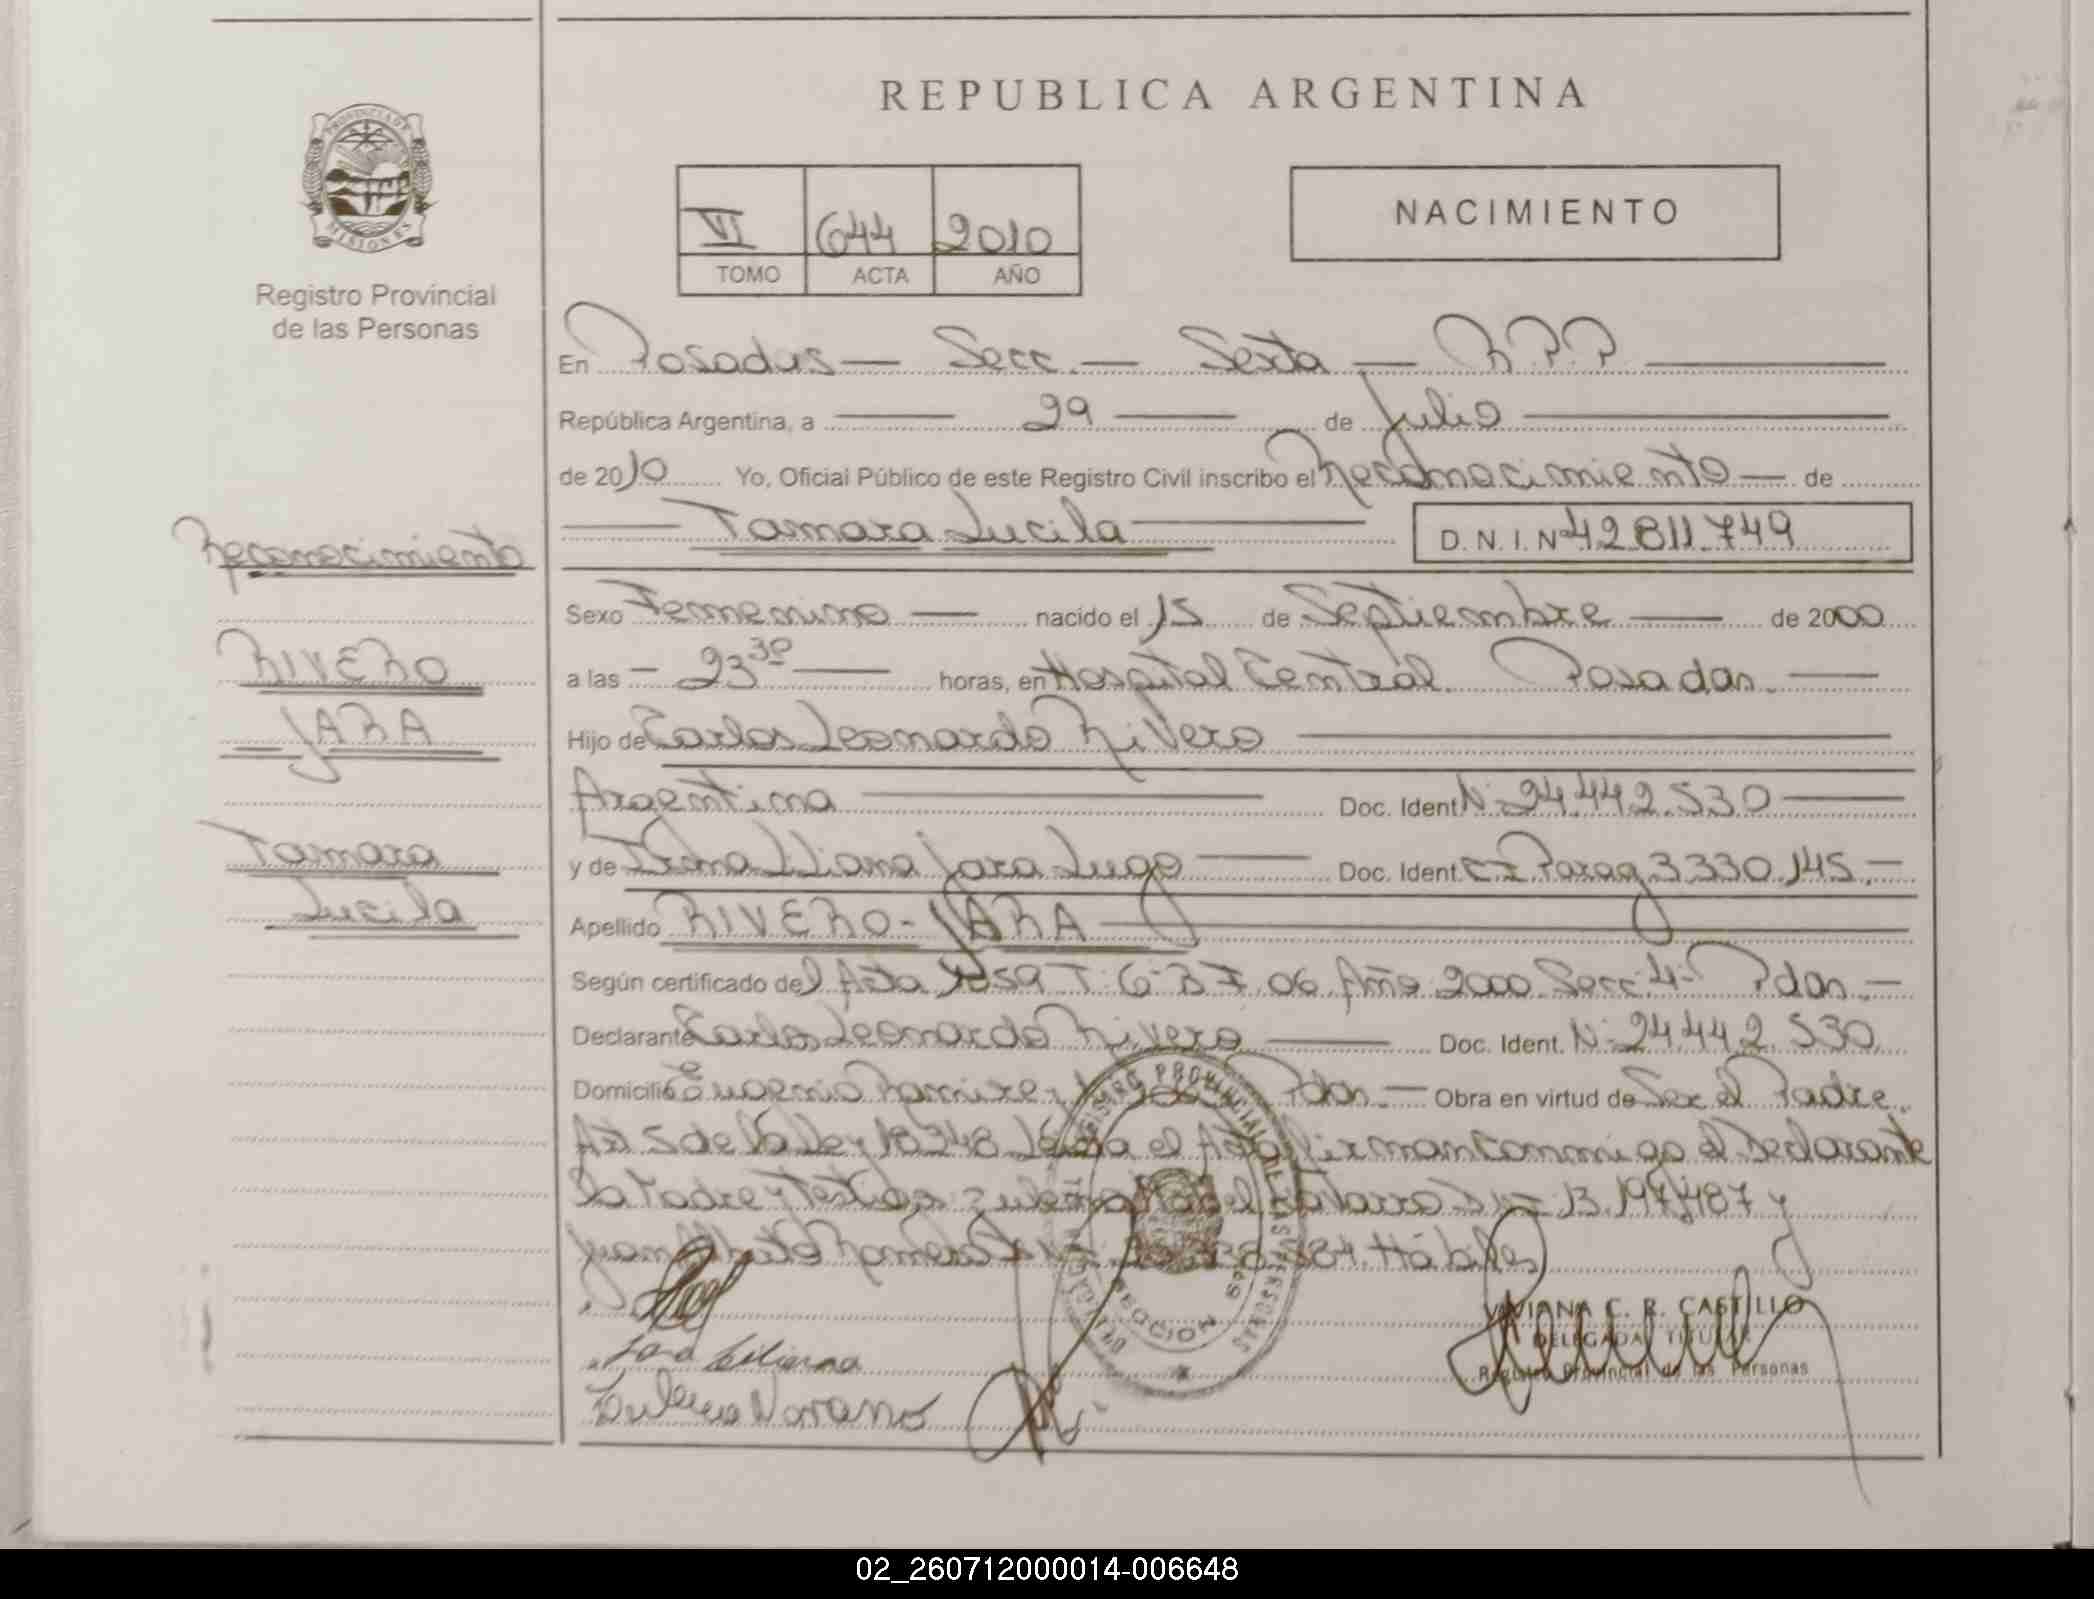 REPUBLICA ARGENTINA
PROVINCIA DE
MISIONES
Registro Provincial
de las Personas
VI 644 2010
TOMO ACTA AÑO
NACIMIENTO
En Posadas — Secc. — Sexta — R.P.P.
República Argentina, a 29 de Julio
de 2010 Yo, Oficial Público de este Registro Civil inscribo el Reconocimiento — de
Tamara Lucila D.N.I. Nº 42.811.749
Reconocimiento
Sexo Femenino — nacido el 15 de Septiembre — de 2000
RIVERO
a las — 23 30 — horas, en Hospital Central Posadas. —
JARA
Hijo de Carlos Leonardo Rivero
Argentina — Doc. Ident. Nº 24.442.530 —
Tamara
y de Irma Liliana Jara Lugo — Doc. Ident. CI Parag 3.330.145. —
Lucila
Apellido RIVERO - JARA
Según certificado del Acta Tº 6º 06 Año 2000 Secc. 4º Pdas. —
Declarante Carlos Leonardo Rivero — Doc. Ident. Nº 24.442.530
Domicilio Eugenio Ramirez Pdas. — Obra en virtud de Ser el Padre.
18248 el Acta firman conmigo el Declarante
la Madre y testigos 13.197.487 y
Hábiles
REGISTRO PROVINCIAL DE LAS PERSONAS
DELEGACION
SECCION 6ta
VIVIANA C. R. CASTILLO
DELEGADA TITULAR
Registro Provincial de las Personas
Jara Liliana
02_260712000014-006648